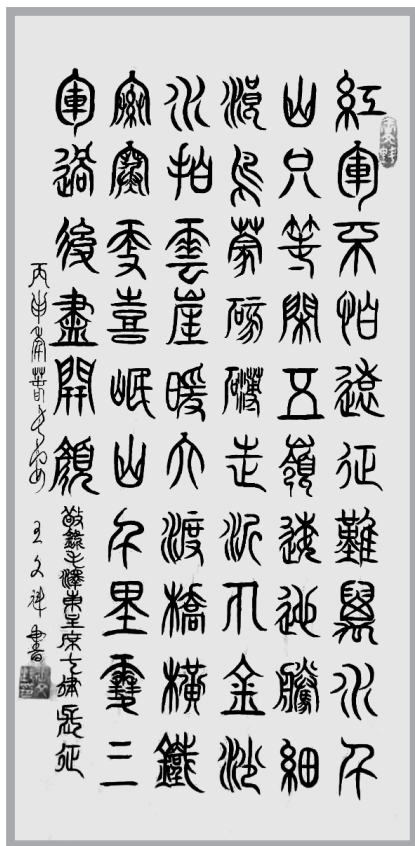 紅軍不怕遠征難萬水千
山只等閑五嶺逶迤騰細
浪烏蒙磅礴走泥丸金沙
水拍雲崖暖大渡橋橫鐵
索寒更喜岷山千里雪三
軍過後盡開顏
敬錄毛澤東主席七律長征
丙申 王文祥書